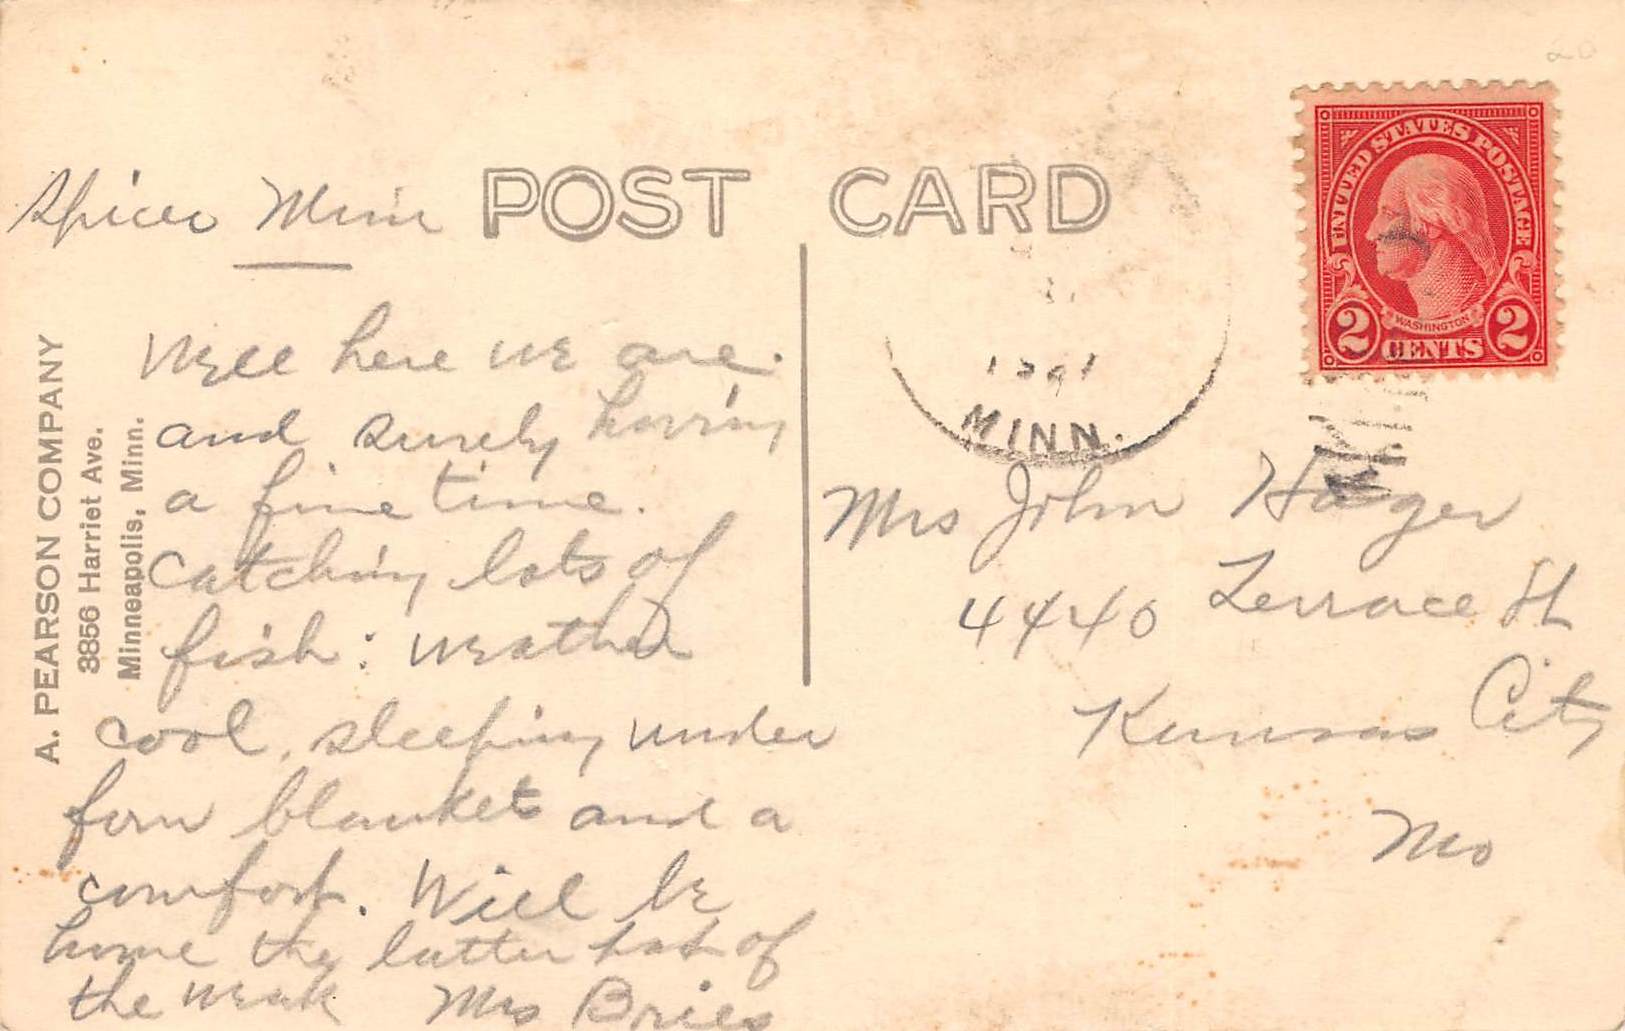 Spicer Minn
POST CARD
UNITED STATES POSTAGE
WASHINGTON
2 CENTS 2
MINN.
A. PEARSON COMPANY
3856 Harriet Ave.
Minneapolis, Minn.
Well here we are.
and surely having
a fine time.
Catching lots of
fish: weather
cool, sleeping under
four blankets and a
comfort. Will be
home the latter part of
the week Mrs Bries
Mrs John Hager
4440 Terrace St
Kansas City
Mo